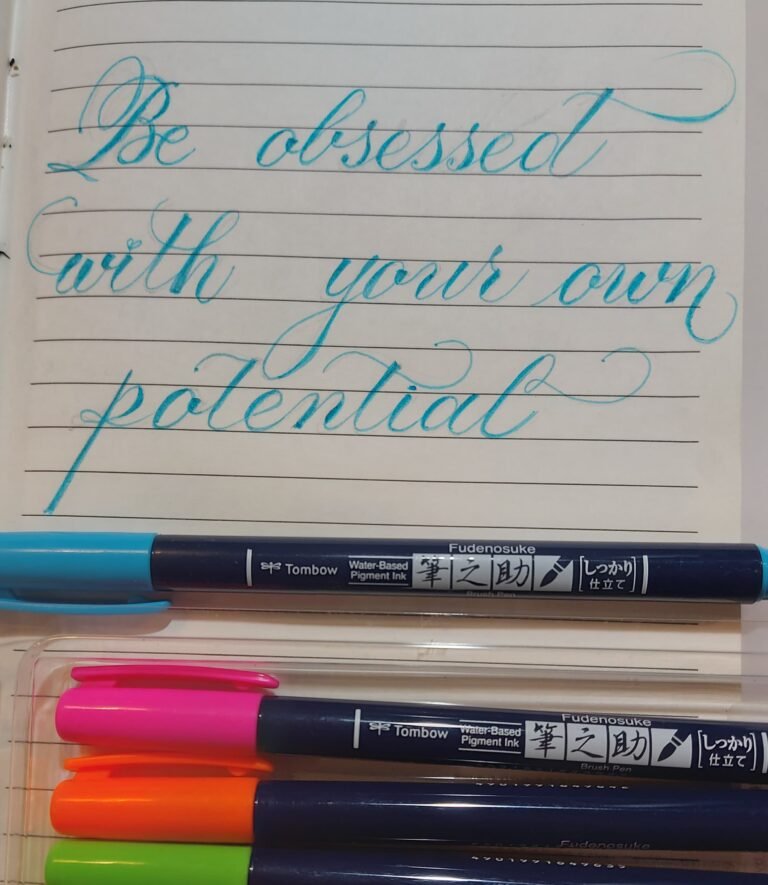 Be obsessed
with your own
potential
Fudenosuke
Tombow
Water-Based
Pigment Ink
筆之助
[しっかり
仕立て]
Brush Pen
Fudenosuke
Tombow
Water-Based
Pigment Ink
筆之助
[しっかり
仕立て]
Brush Pen
Fudenosuke